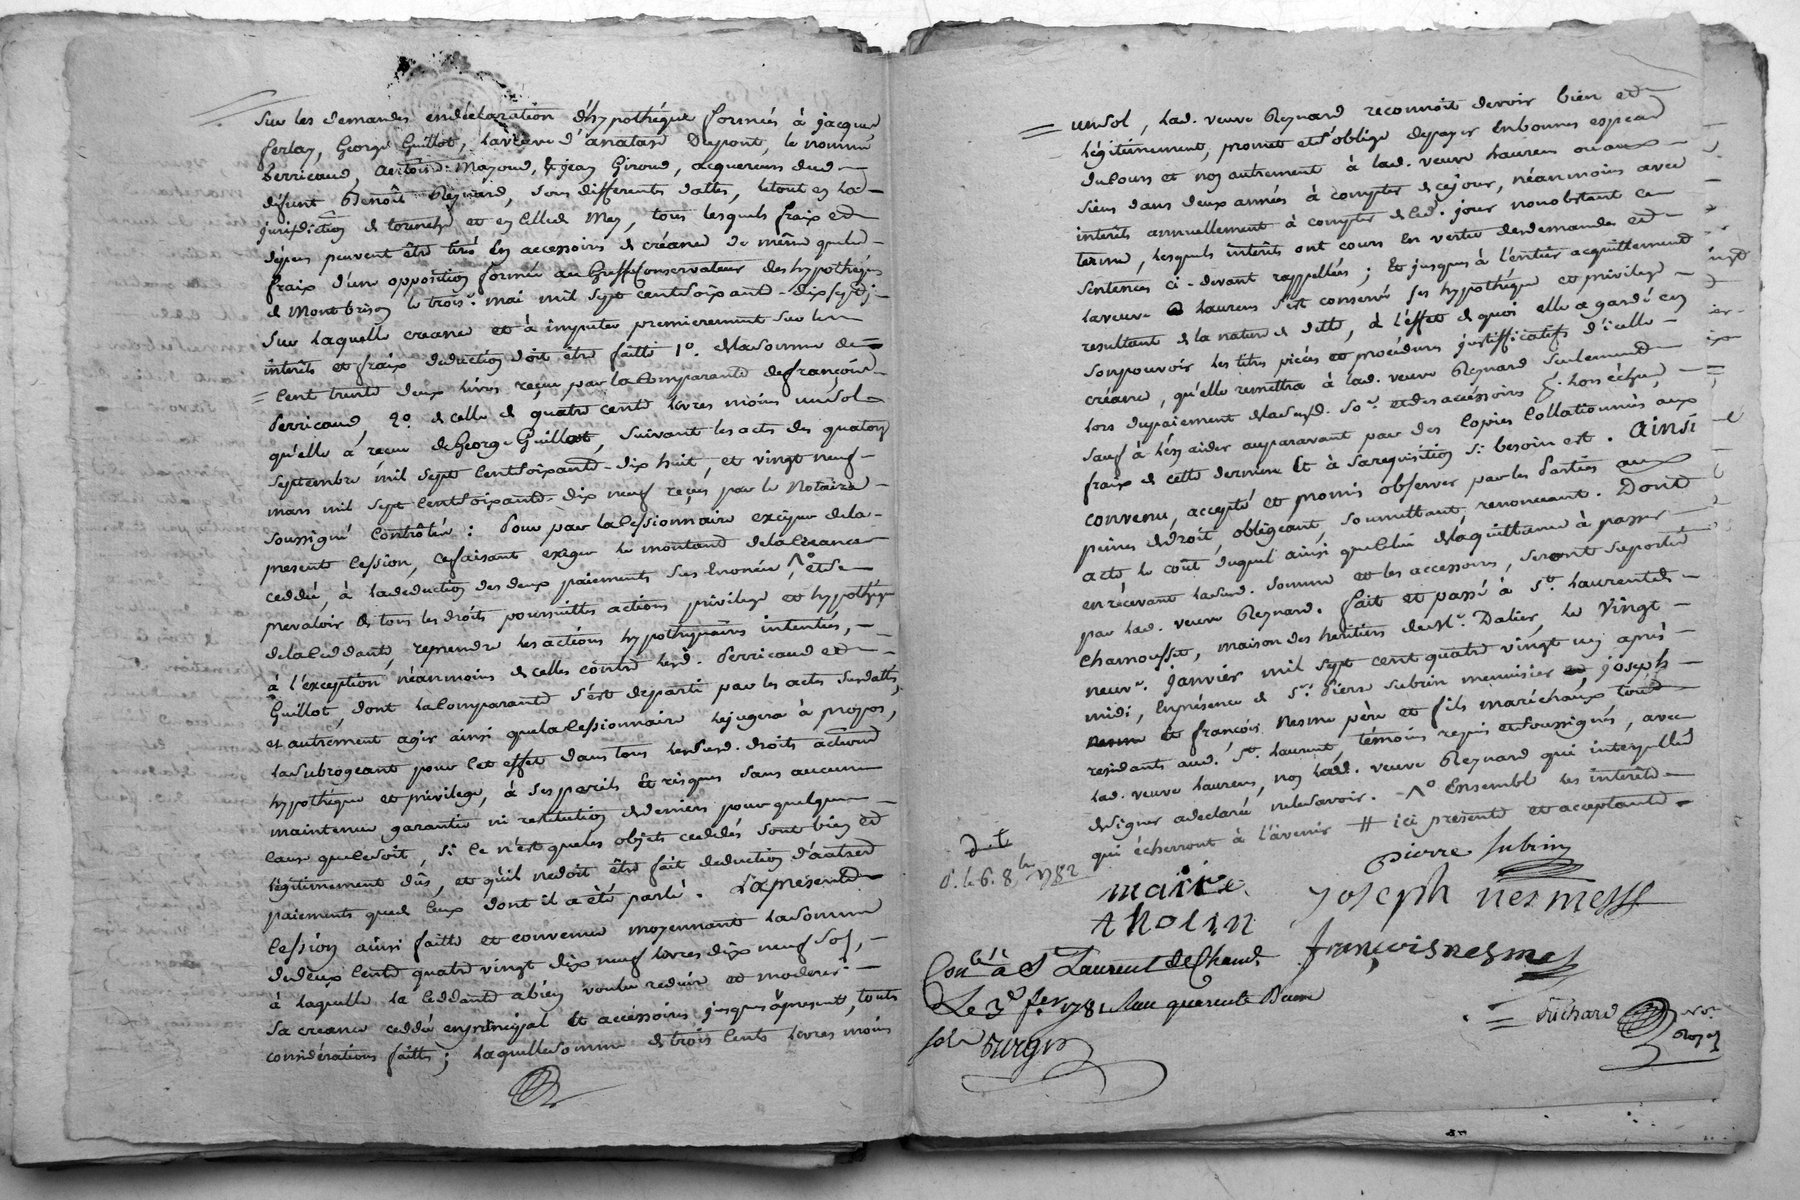 sur les demandes endéclaration d'hypothéque formées à jacques
ferlay, George Guillot, la veuve d'anatase Dupont, le nommé
Perricaud, Mazoud, & jean Giroud, acquereurs dud
défunt Benoît Reynard, sous differents dattes, letout en la
jurisdiction de et en celle de Mey, tous lesquels fraix et
dépens peuvent être tirés en accessoires de créance de même quele
fraix d'une opposition formée au Greffe Conservateur des hypothéques
de Montbrison le trois.e mai mil sept centsoixante-dixsept;
sur laquelle creance et à imputer premierement sur les
intérêts et fraix déduction doit être faitte 1.o delasomme de
Cent trente deux livres reçue par la Comparante defrançois
Perricaud, 2.o de celle de quatre cents livres moins unsol
qu'elle a reçue de George Guillot, suivant les actes des quatorze
septembre mil sept Centsoixante-dix huit, et vingt neuf
mars mil sept Centsoixante-dix neuf reçus par le Notaire
soussigné Contrôlés: Pour par la Cessionnaire exciper dela
presente Cession, cefaisant exiger le montant dela Creance
ceddée, à ladéduction des deux paiements sus énoncés, ^o etse
prevaloir de tous les droits poursuittes actions privilege et hypothéque
dela Ceddante, reprendre les actions hypothéquaires intentées,
à l'exception néanmoins de celles contre lesd. Perricaud et
Guillot, dont la Comparante s'est departi par les actes susdattés,
et autrement agir ainsi que la Cessionnaire lejugera à propos,
la subrogeant pour Cet effet dans tous lesSusd. droits actions
hypothéque et privilege, à ses perils et risques sans aucune
maintenue garantie ni restitution de deniers pour quelque
Cause quecesoit, si ce n'est queles objets ceddés sont bien et
légitimement dûs, et qu'il nedoit être fait deduction d'autres
paiements que de Ceux dont il a été parlé. La presente
Cession ainsi faitte et convenue moyennant la somme
de deux Cents quatre vingt dix neuf livres dix neuf sols,
à laquelle la Ceddante abien voulu reduire et moderer
sa creance ceddée enprincipal et accessoires jusques àpresent, touts
considérations faittes; laquelle somme de trois Cents livres moins
unsol, lad. veuve Reynard reconnoit devoir bien et
légitimement, promet et s'oblige depayer en bonnes espèces
ducours et non autrement à lad. veuve Laurens ou aux
siens dans deux années à compter de cejour, néanmoins avec
intérêts annuellement à compter de led. jour nonobstant ce
terme, lesquels intérêts ont cours en vertu desdemandes et
sentences ci-devant rappellées; et jusques à l'entier acquittement
la veuve Laurens s'est conservée ses hypothéque et privilege
resultant de la nature de dette, à l'effet de quoi elle a gardé en
sonpouvoir les titres pièces et procédures justifficatifs d'icelle
créance, qu'elle remettra à lad. veuve Reynard seulement
lors dupaiement delasusd. so.e et des accessoires lors échus,
sauf à l'en aider auparavant par des Copies Collationnées aux
fraix de cette derniere et à sarequisition si besoin est. Ainsi
convenu, accepté et promis observer par les Parties aux
peines dedroit, obligeant, soumettant, renonceant. Dont
acte le coût duquel ainsi quecelui delaquittance à passer
enrécevant lasusd. somme et les accessoires, seront suportés
par lad. veuve Reynard. fait et passé à S.t Laurent de
Chamousset, maison des heritiers de M.r Dalier, le Vingt
neuv.e janvier mil sept cent quatre vingt un après
midi, Enprésence de S.r Pierre Subrin menuisier, joseph
et françois Nesme père et fils maréchaux tous
residants aud. S.t Laurent, témoins requis etsoussignés, avec
lad. veuve Laurens, non lad. veuve Reynard qui interpellée
designer adeclaré nelesavoir. ^o Ensemble les intérêts
qui écherront à l'avenir # ici presente et acceptante.
pierre subrin
marie
joseph nesme
françois nesme
Con.lé à St Laurent de Cham.
Le 3.e fev. 1781 Reçu quarente Deux
sols
Richard N.re
Royal